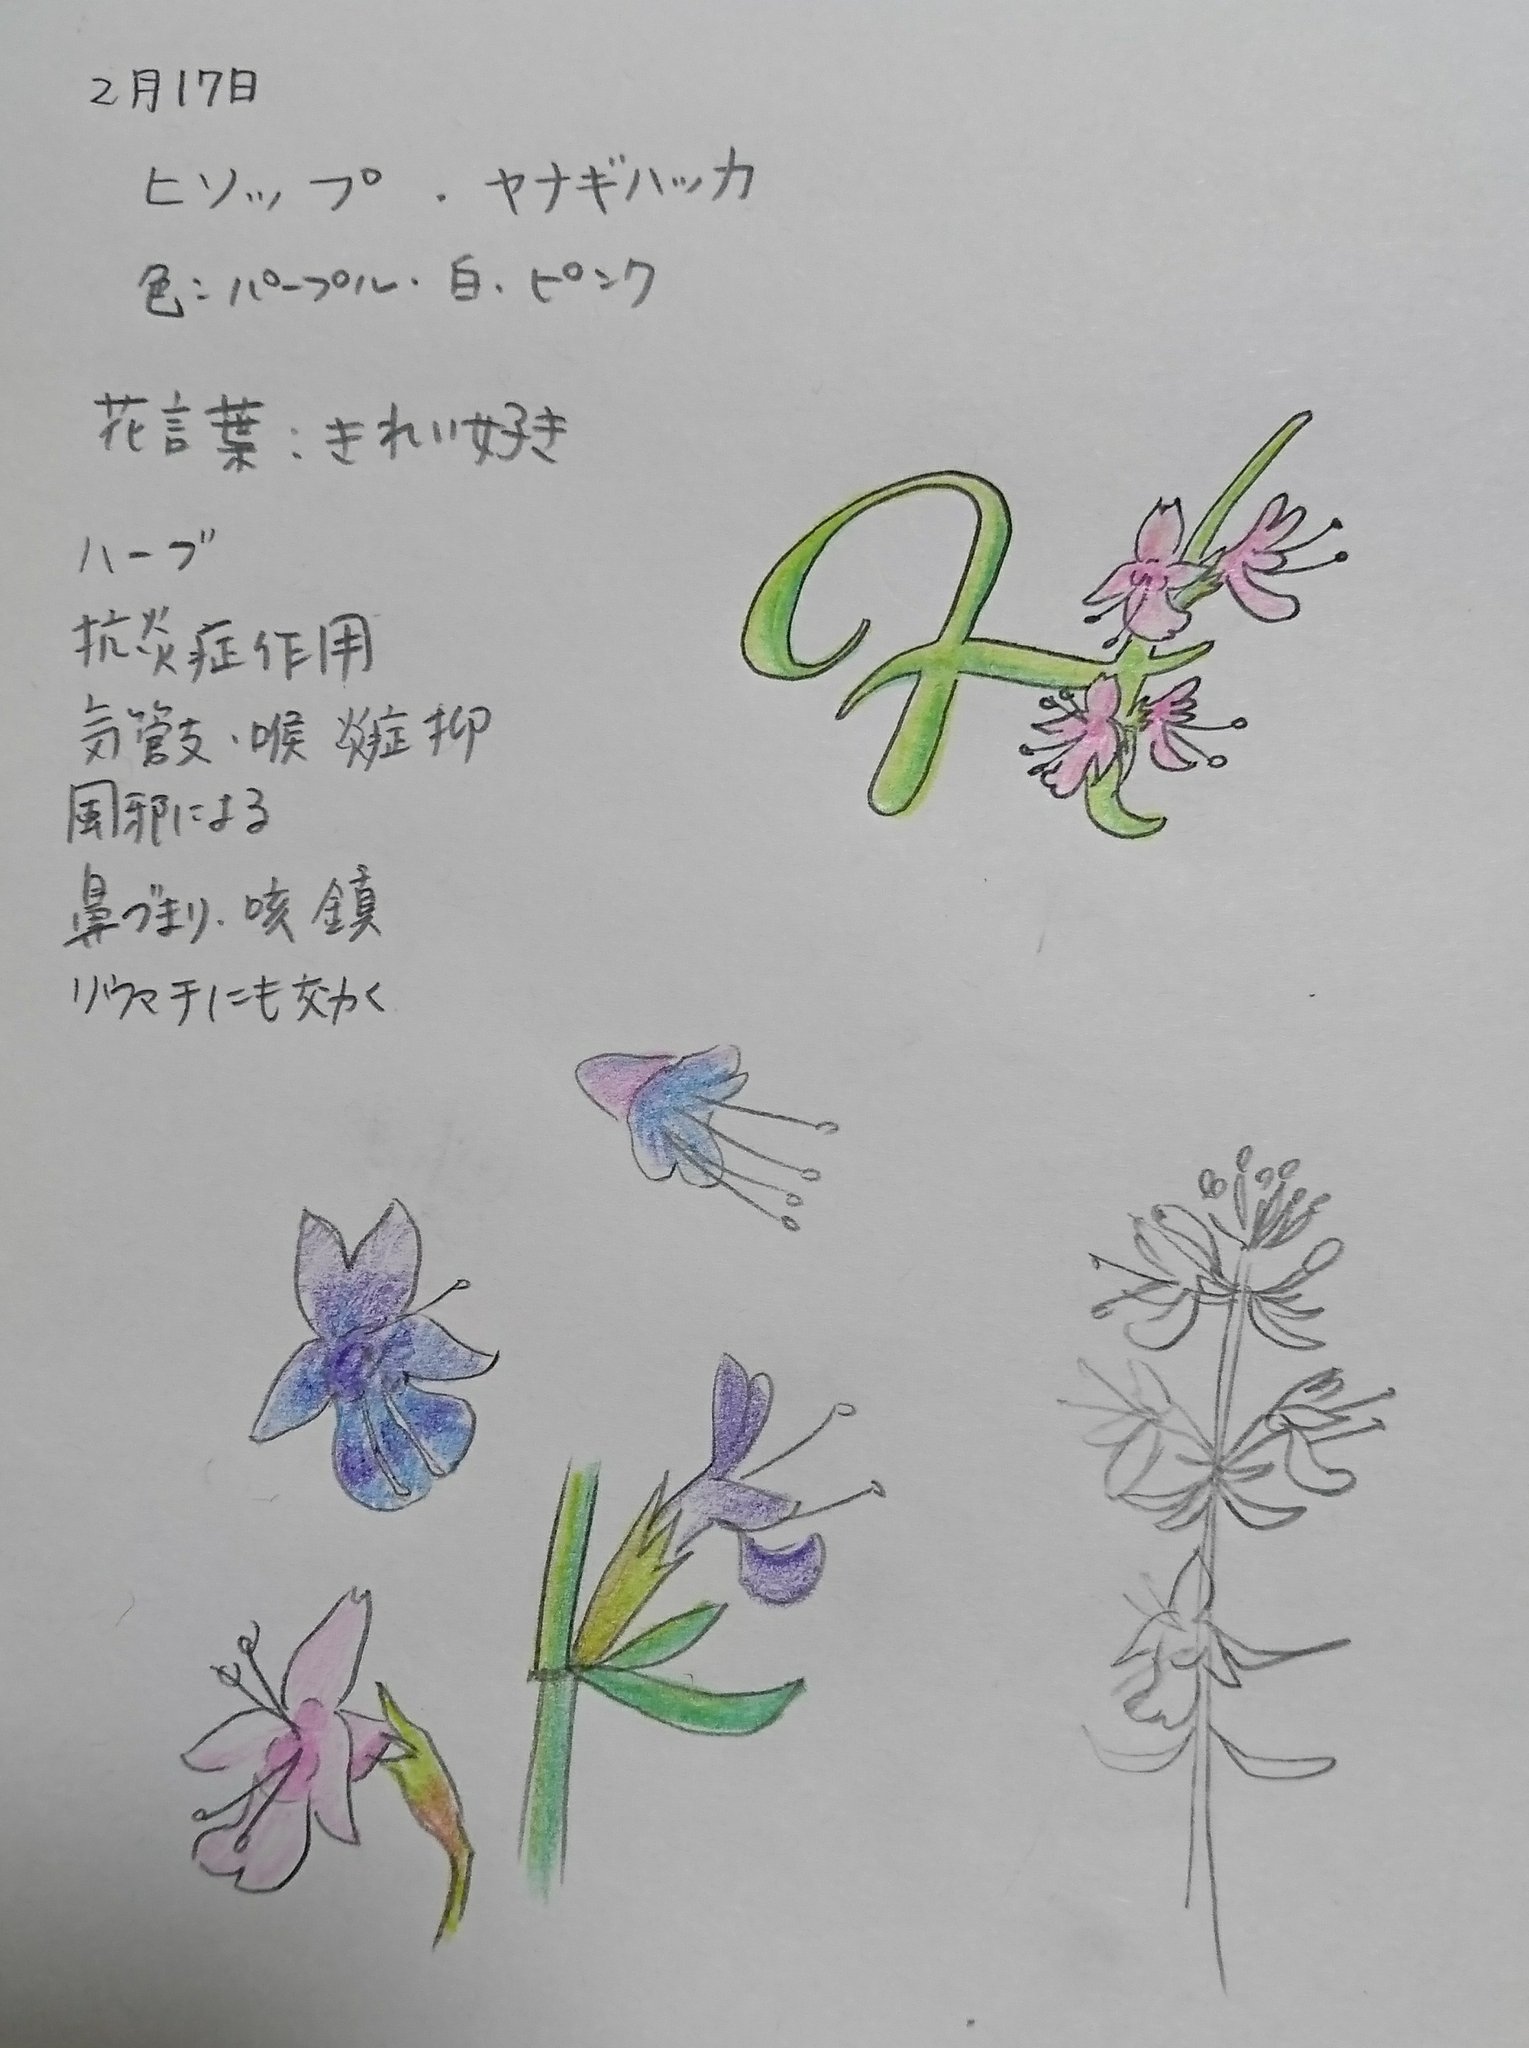 2月17日
ヒソップ・ヤナギハッカ
色:パープル・白・ピンク
花言葉:きれい好き
ハーブ
抗炎症作用
気管支・喉炎症抑
風邪による
鼻づまり・咳鎮
リウマチにも効く
H